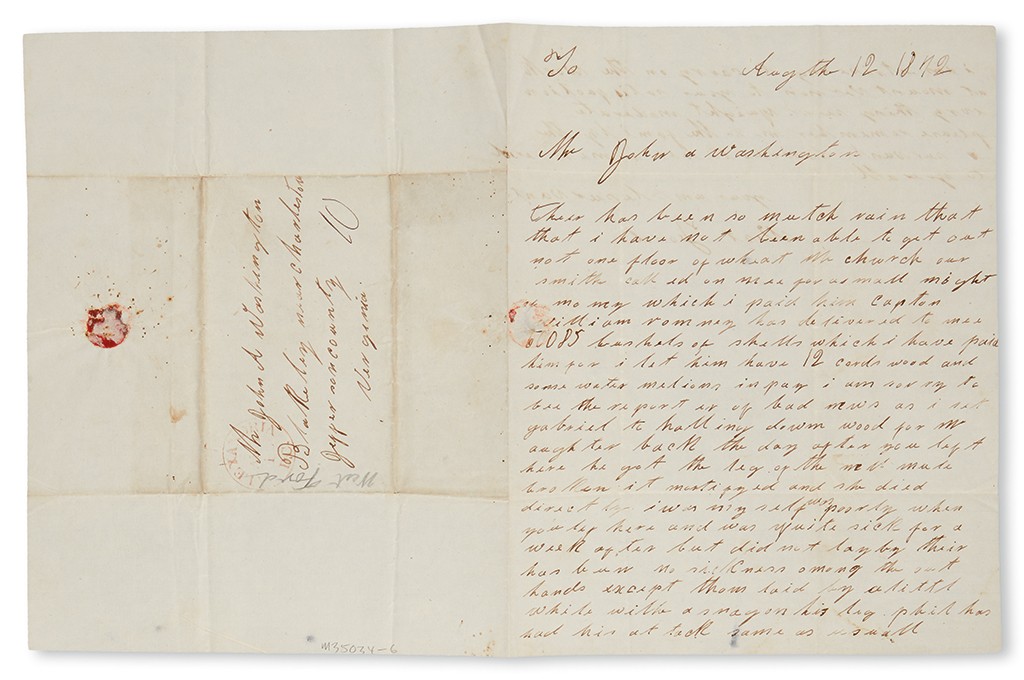 Mr John A Washington
Blakeley near charlestown
Jefferson county
Vergenia
10
West
Ford
M35034-6
To Augth 12 1842
Mr John a Washington
Theer has been so mutch rain that
that i have not been able to get out
not one floor of wheat Mr church our
smith call ed on mee for a small might
mony which i paid him Capton
william romney has delivered to mee
1085 bushels of shells which i have paid
him for i let him have 12 cords wood and
some water melions in pay i am sorry to
bee the report er of bad news as i set
gabriel to halling down wood for Mr
back the day after you left
here he got the leg of the mule made
broken it mortifyed and she died
directly i was my self very poorly when
you lef here and was quite sick for a
week after but did not lay by their
has been no sickness among the out
hands except thom laid by a littl
while with a snag on his leg phil has
had his at tack same as usuall